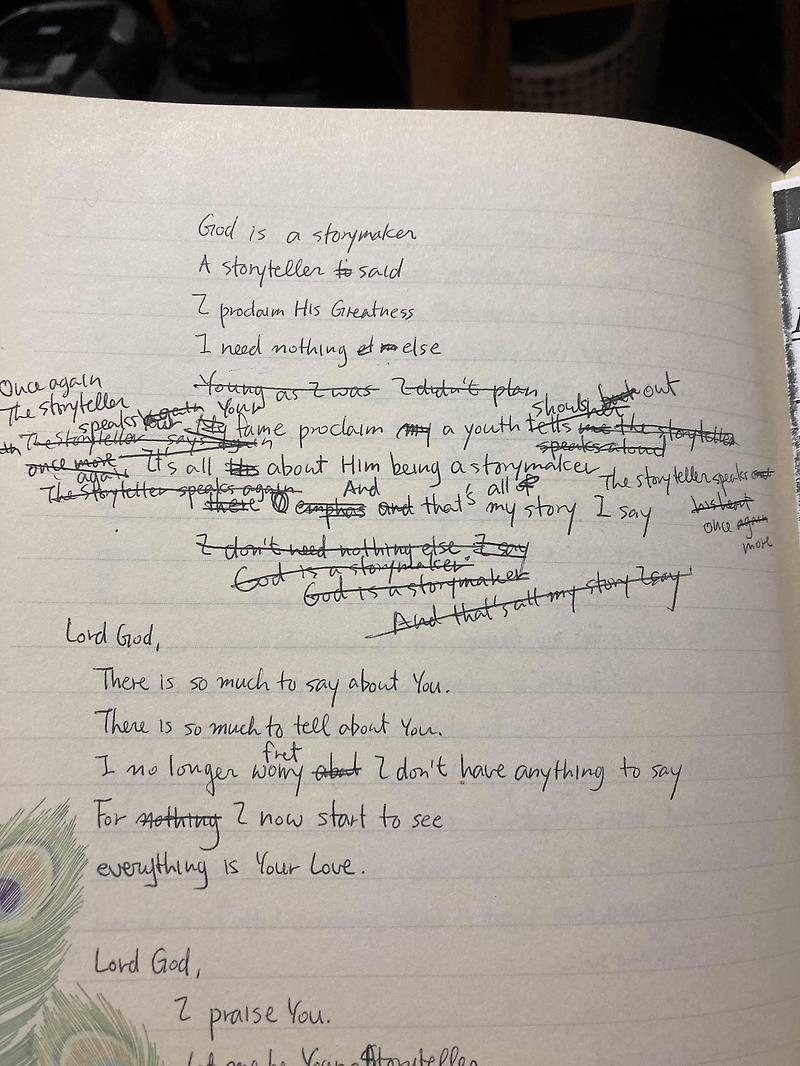 God is a storymaker
A storyteller to said
I proclaim His Greatness
I need nothing else
Young as I was I didn't plan
Once again
The storyteller
speaks again Your shouts her out
fame proclaim my a youth tells me the storyteller
The storyteller says again speaks aloud
once more It's all about Him being a storymaker
again. And all of The storyteller speaks out
The storyteller speaks again there emphas and that's my story I say
once again
more
I don't need nothing else. I say
God is a storymaker.
God is a storymaker
And that's all my story I say
Lord God,
There is so much to say about You.
There is so much to tell about You.
fret
I no longer worry about I don't have anything to say
For nothing I now start to see
everything is Your Love.
Lord God,
I praise You.
Let me be Your Storyteller